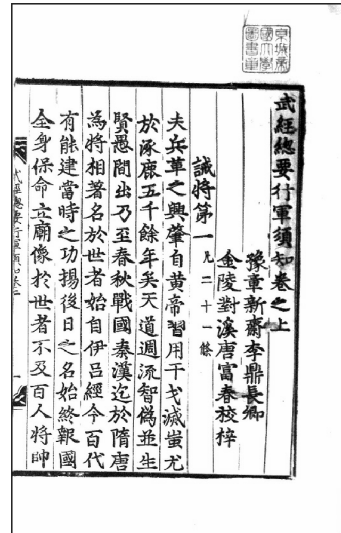 京城帝
國大學
圖書章
武經總要行軍須知卷之上
豫章新齋李鼎長卿
金陵對溪唐富春校梓
誡將第一 凡二十一餘
夫兵革之興肇自黃帝習用干戈滅蚩尤
於涿鹿五千餘年矣天道週流智偽並生
賢愚間出乃至春秋戰國秦漢迄於隋唐
為將相著名於世者始自伊呂經今百代
有能建當時之功揚後日之名始終報國
全身保命立廟像於世者不及百人將帥